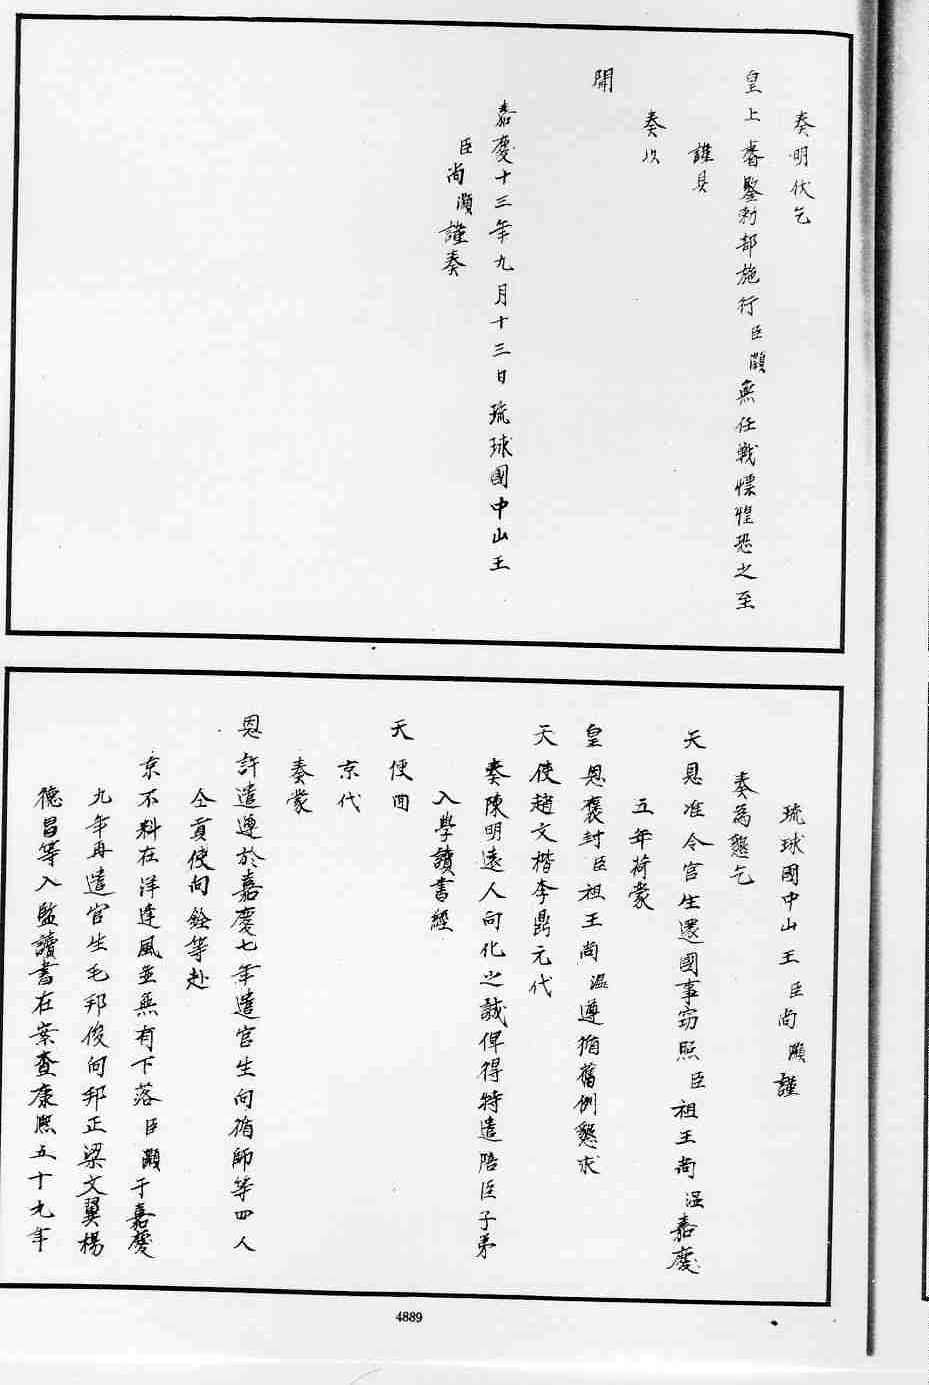 奏明伏乞
皇上睿鑒勅部施行臣灝無任戰慄惶恐之至
謹具
奏以
聞
嘉慶十三年九月十三日琉球國中山王
臣尚灝謹奏
琉球國中山王臣尚灝謹
奏為懇乞
天恩准令官生還國事窃照臣祖王尚温嘉慶
五年荷蒙
皇恩褒封臣祖王尚温遵循舊例懇求
天使趙文楷李鼎元代
奏陳明遠人向化之誠俾得特遣陪臣子弟
入學讀書經
天使回
京代
奏蒙
恩許遣遵於嘉慶七年遣官生向循師等四人
仝貢使向銓等赴
京不料在洋逢風並無有下落臣灝于嘉慶
九年再遣官生毛邦俊向邦正梁文翼楊
德昌等入監讀書在案查康熙五十九年
4889